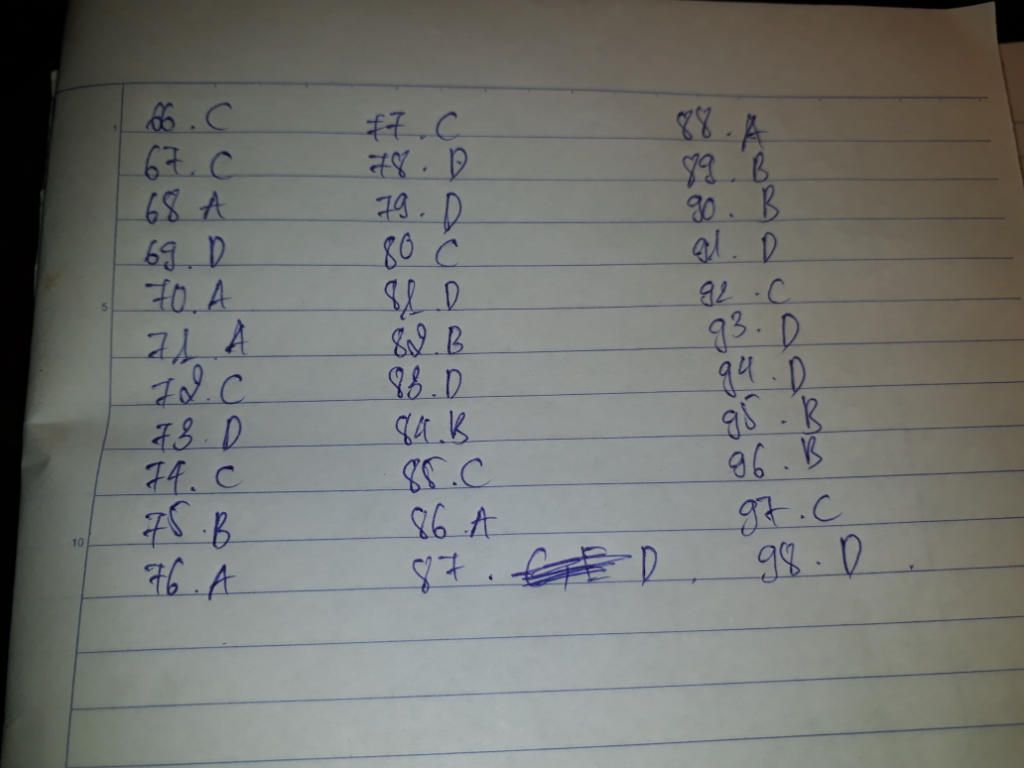 66. C
67. C
68 A
69. D
70. A
71. A
72. C
73. D
74. C
75. B
76. A
77. C
78. D
79. D
80 C
81. D
82. B
83. D
84. B
85. C
86. A
87. D.
88. A
89. B
90. B
91. D
92. C
93. D
94. D
95. B
96. B
97. C
98. D.
1
5
10